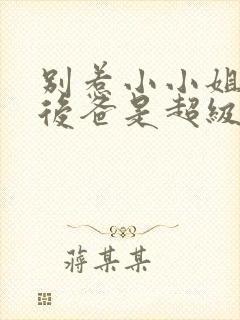 别惹小小姐
後爸是超級
蔣某某